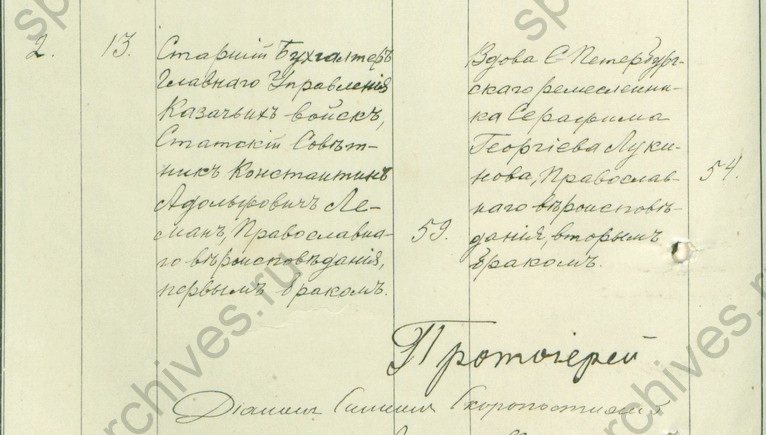 2.
13.
Старшій Бухгалтеръ
Главнаго Управленія
Казачьихъ войскъ,
Статскій Совѣт-
никъ Константинъ
Адольфовичъ Ле-
манъ, Православна-
го вѣроисповѣданія,
первымъ бракомъ.
59.
Вдова С Петербург-
скаго ремесленни-
ка Серафима
Георгіева Луки-
нова, Православ-
наго вѣроисповѣ-
данія, вторымъ
бракомъ.
54.
Протоіерей
Діаконъ Симеонъ Скоропостижный
archives.ru